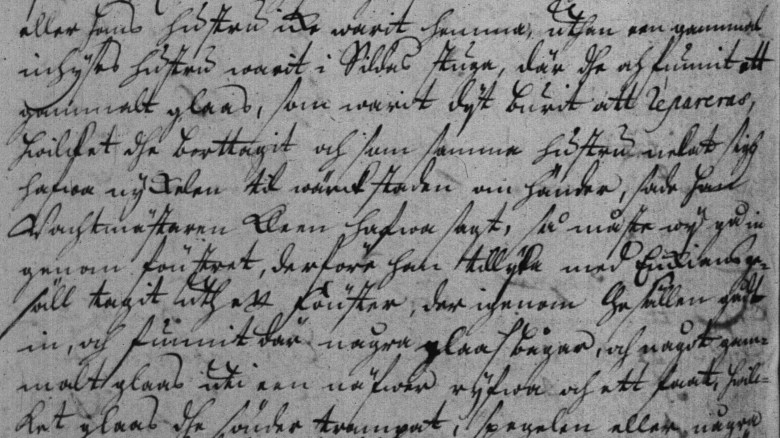 eller hans hustru icke warit hemma, uthan een gammal
inhyses hustru warit i Sildas stuga, där dhe och funnit ett
gammalt glaas, som warit dyt burit att repareras,
hwilcket dhe borttagit och som samma hustru nekat sig
hafwa nyckelen til wärckstaden om händer, sade han
Wachtmästaren Kleen hafwa sagt, så måste wij gå in
genom fönstret, derföre han tillijka med Enckians ge-
säll tagit uth ett fönster, der igenom Gesällen gådt
in, och funnit där några glaas bägar, och något gam-
malt glaas uti een näfwer ryfwa och ett faat, hwil-
ket glaas dhe sönder trampat, spegelen eller några